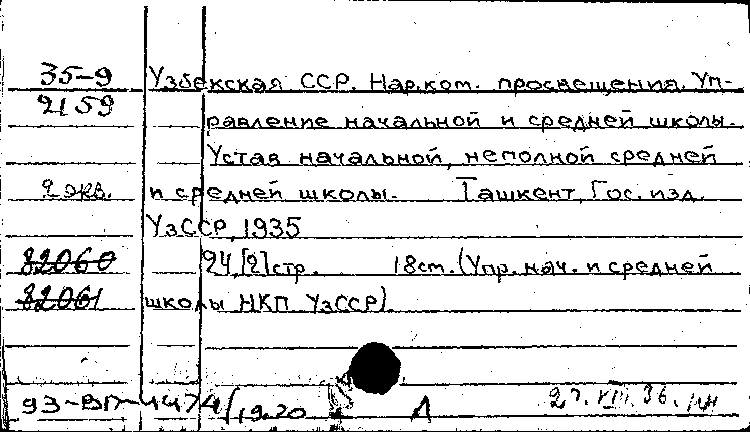 35-9 Узбекская ССР. Нар.ком. просвещения. Уп-
2159 равление начальной и средней школы.
Устав начальной, неполной средней
2 экз. и средней школы. Ташкент, Гос. изд.
УзССР, 1935
82060 24,[2]стр. 18см. (Упр. нач. и средней
82061 школы НКП УзССР)
93-ВП-4474/1920 Л 27.VIII.36.